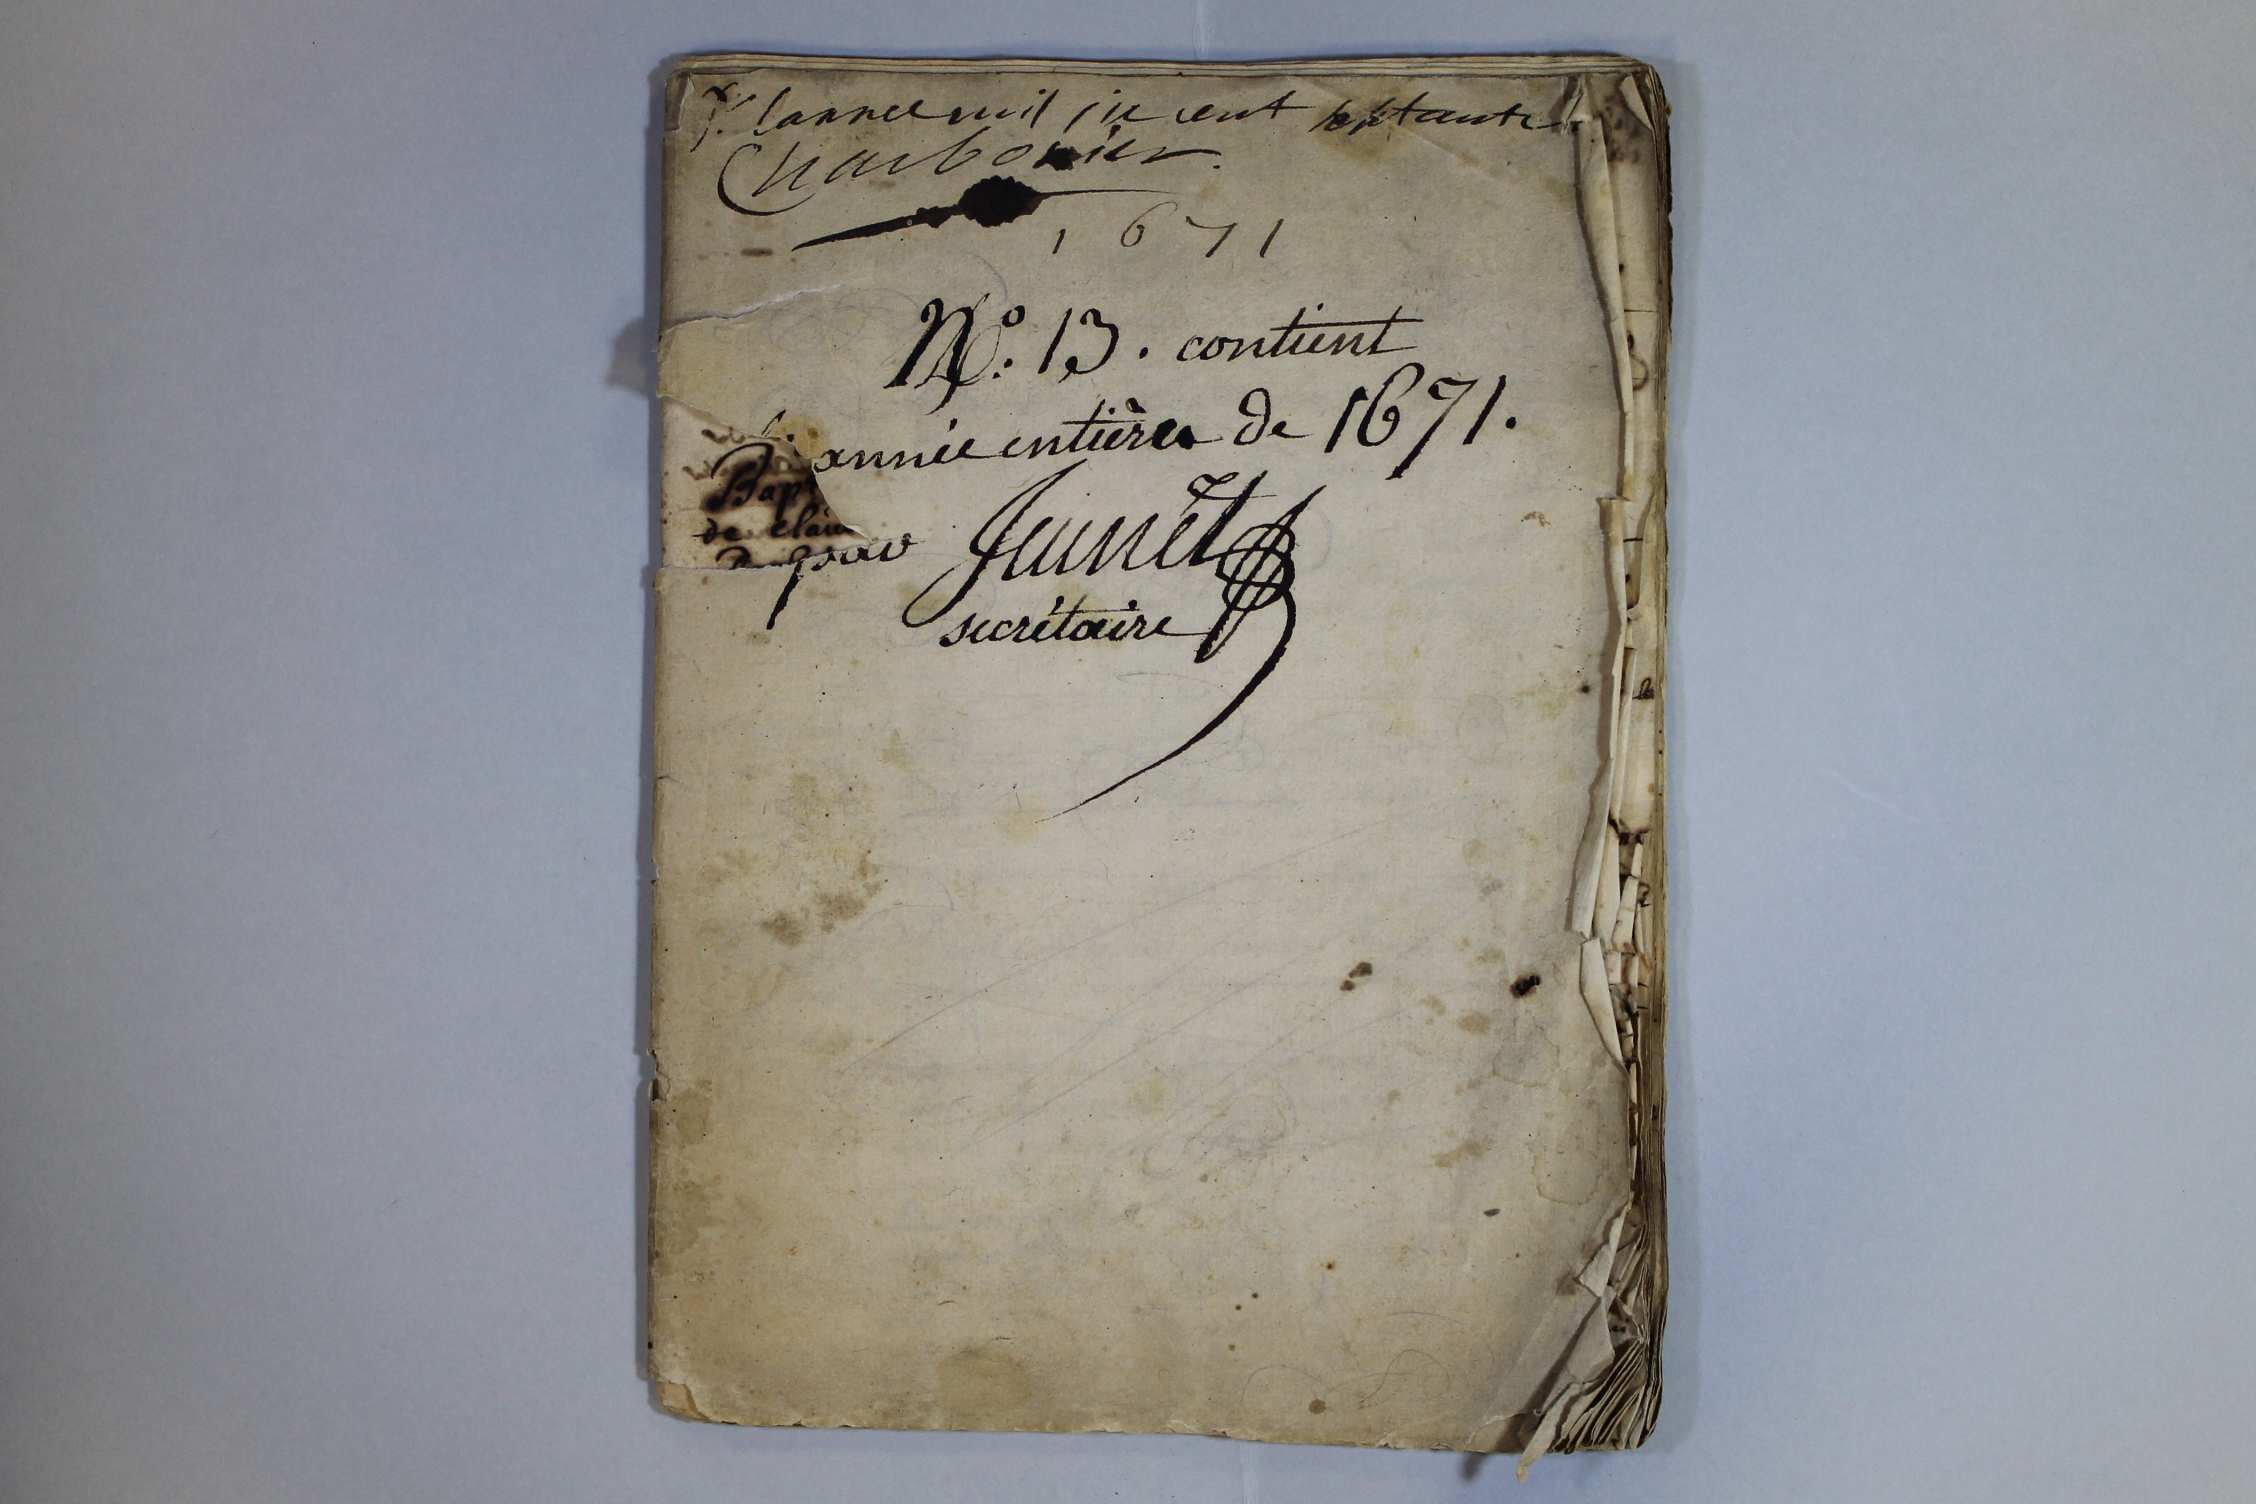 P. lannee mil six cent septante
Charbonier.
1671
N.º 13. contient
l'année entière de 1671.
Bap
de clau
par Junet
secrétaire